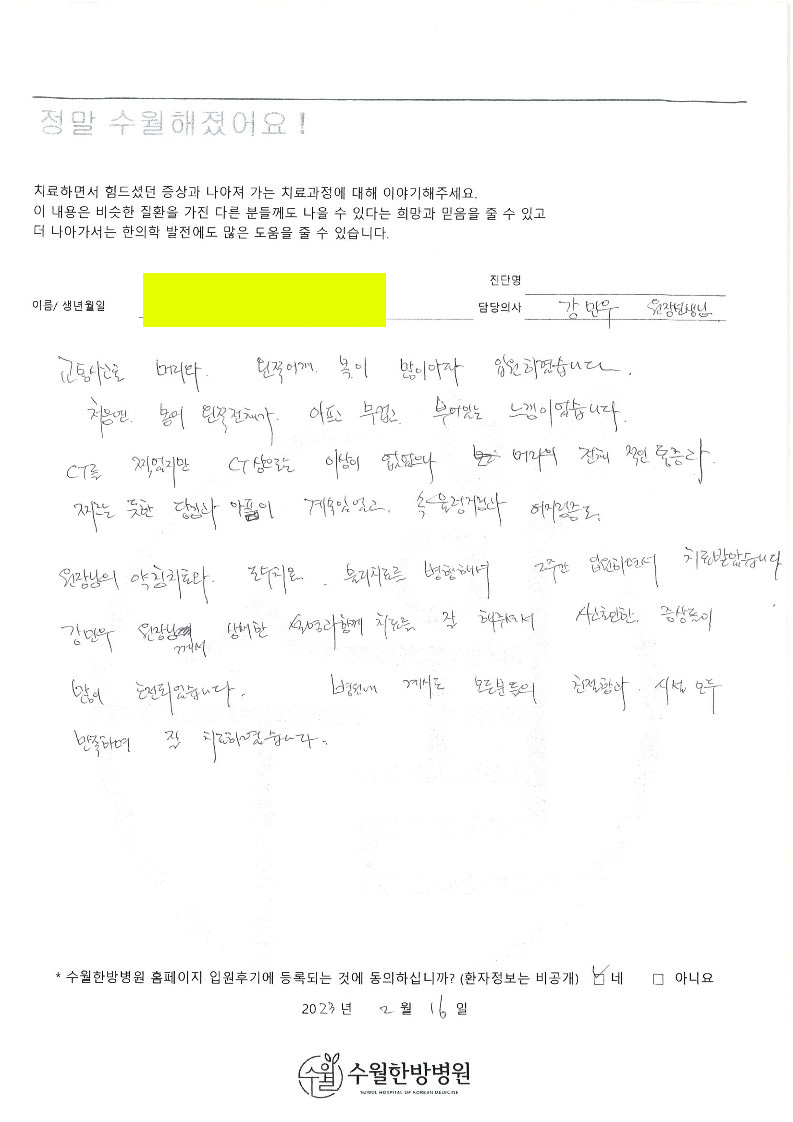 정말 수월해졌어요!
치료하면서 힘드셨던 증상과 나아져 가는 치료과정에 대해 이야기해주세요.
이 내용은 비슷한 질환을 가진 다른 분들께도 나을 수 있다는 희망과 믿음을 줄 수 있고
더 나아가서는 한의학 발전에도 많은 도움을 줄 수 있습니다.
진단명
이름/ 생년월일
담당의사 강민우 원장선생님
교통사고로 머리와. 왼쪽어깨. 목이 많이아파 입원하였습니다.
처음엔. 몸이 왼쪽전체가. 아프고 무겁고. 부어있는 느낌이었습니다.
CT를 찍었지만 CT상으로는 이상이 없었으나 머리의 전체 적인 통증과.
찌르는 듯한 당김과 아픔이 계속있었고. 속 울렁거림과 어지럼증도.
원장님의 약침치료와. 추나치료. 물리치료를 병행해서 2주간 입원하면서 치료받았습니다.
강민우 원장님께서 상세한 설명과함께 치료를 잘 해주셔서 증상들이
많이 호전되었습니다. 병원에 계시는 모든분들의 친절함과. 시설 모두
만족하며 잘 치료하였습니다.
* 수월한방병원 홈페이지 입원후기에 등록되는 것에 동의하십니까? (환자정보는 비공개) ☑ 네 □ 아니요
2023년 2월 16일
수월 수월한방병원
SUWOL HOSPITAL OF KOREAN MEDICINE